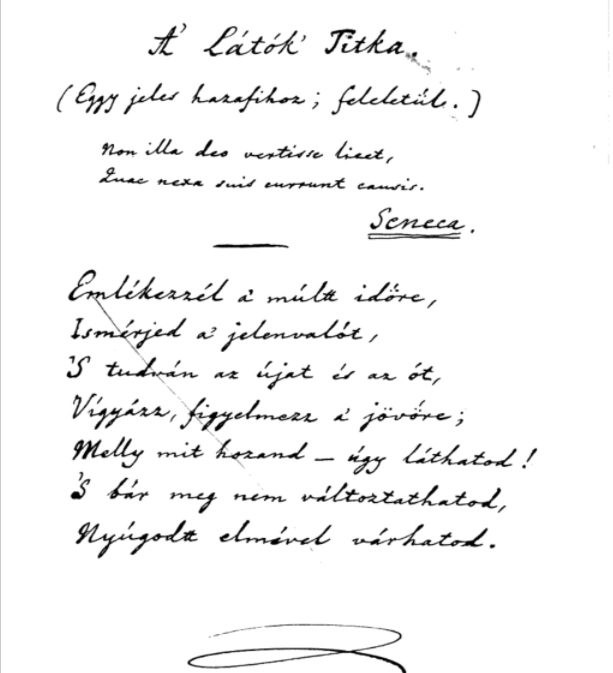 A' Látók' Titka.
(Egy jeles hazafihoz; feleletül.)
Non illa deo vertisse licet,
Quae nexa suis currunt causis.
Seneca.
Emlékezzél a' múltt időre,
Ismérjed a' jelenvalót,
'S tudván az újat és az ót,
Vígyázz, figyelmezz a' jövőre;
Melly mit hozand – úgy láthatod!
'S bár meg nem változtathatod,
Nyúgodtt elmével várhatod.